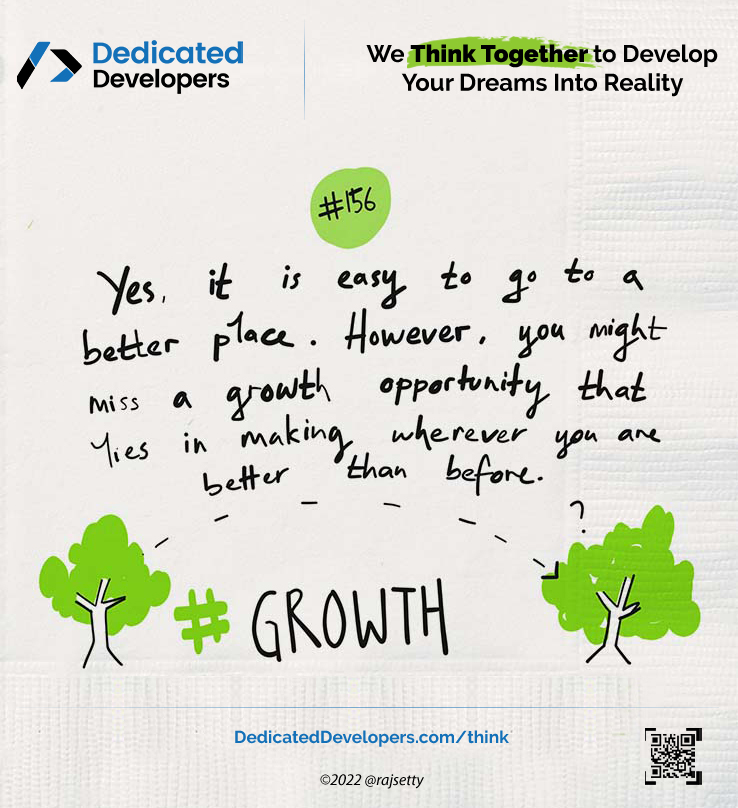 Dedicated
Developers
We Think Together to Develop
Your Dreams Into Reality
#156
Yes, it is easy to go to a
better place. However, you might
miss a growth opportunity that
lies in making wherever you are
better than before.
?
# GROWTH
DedicatedDevelopers.com/think
©2022 @rajsetty